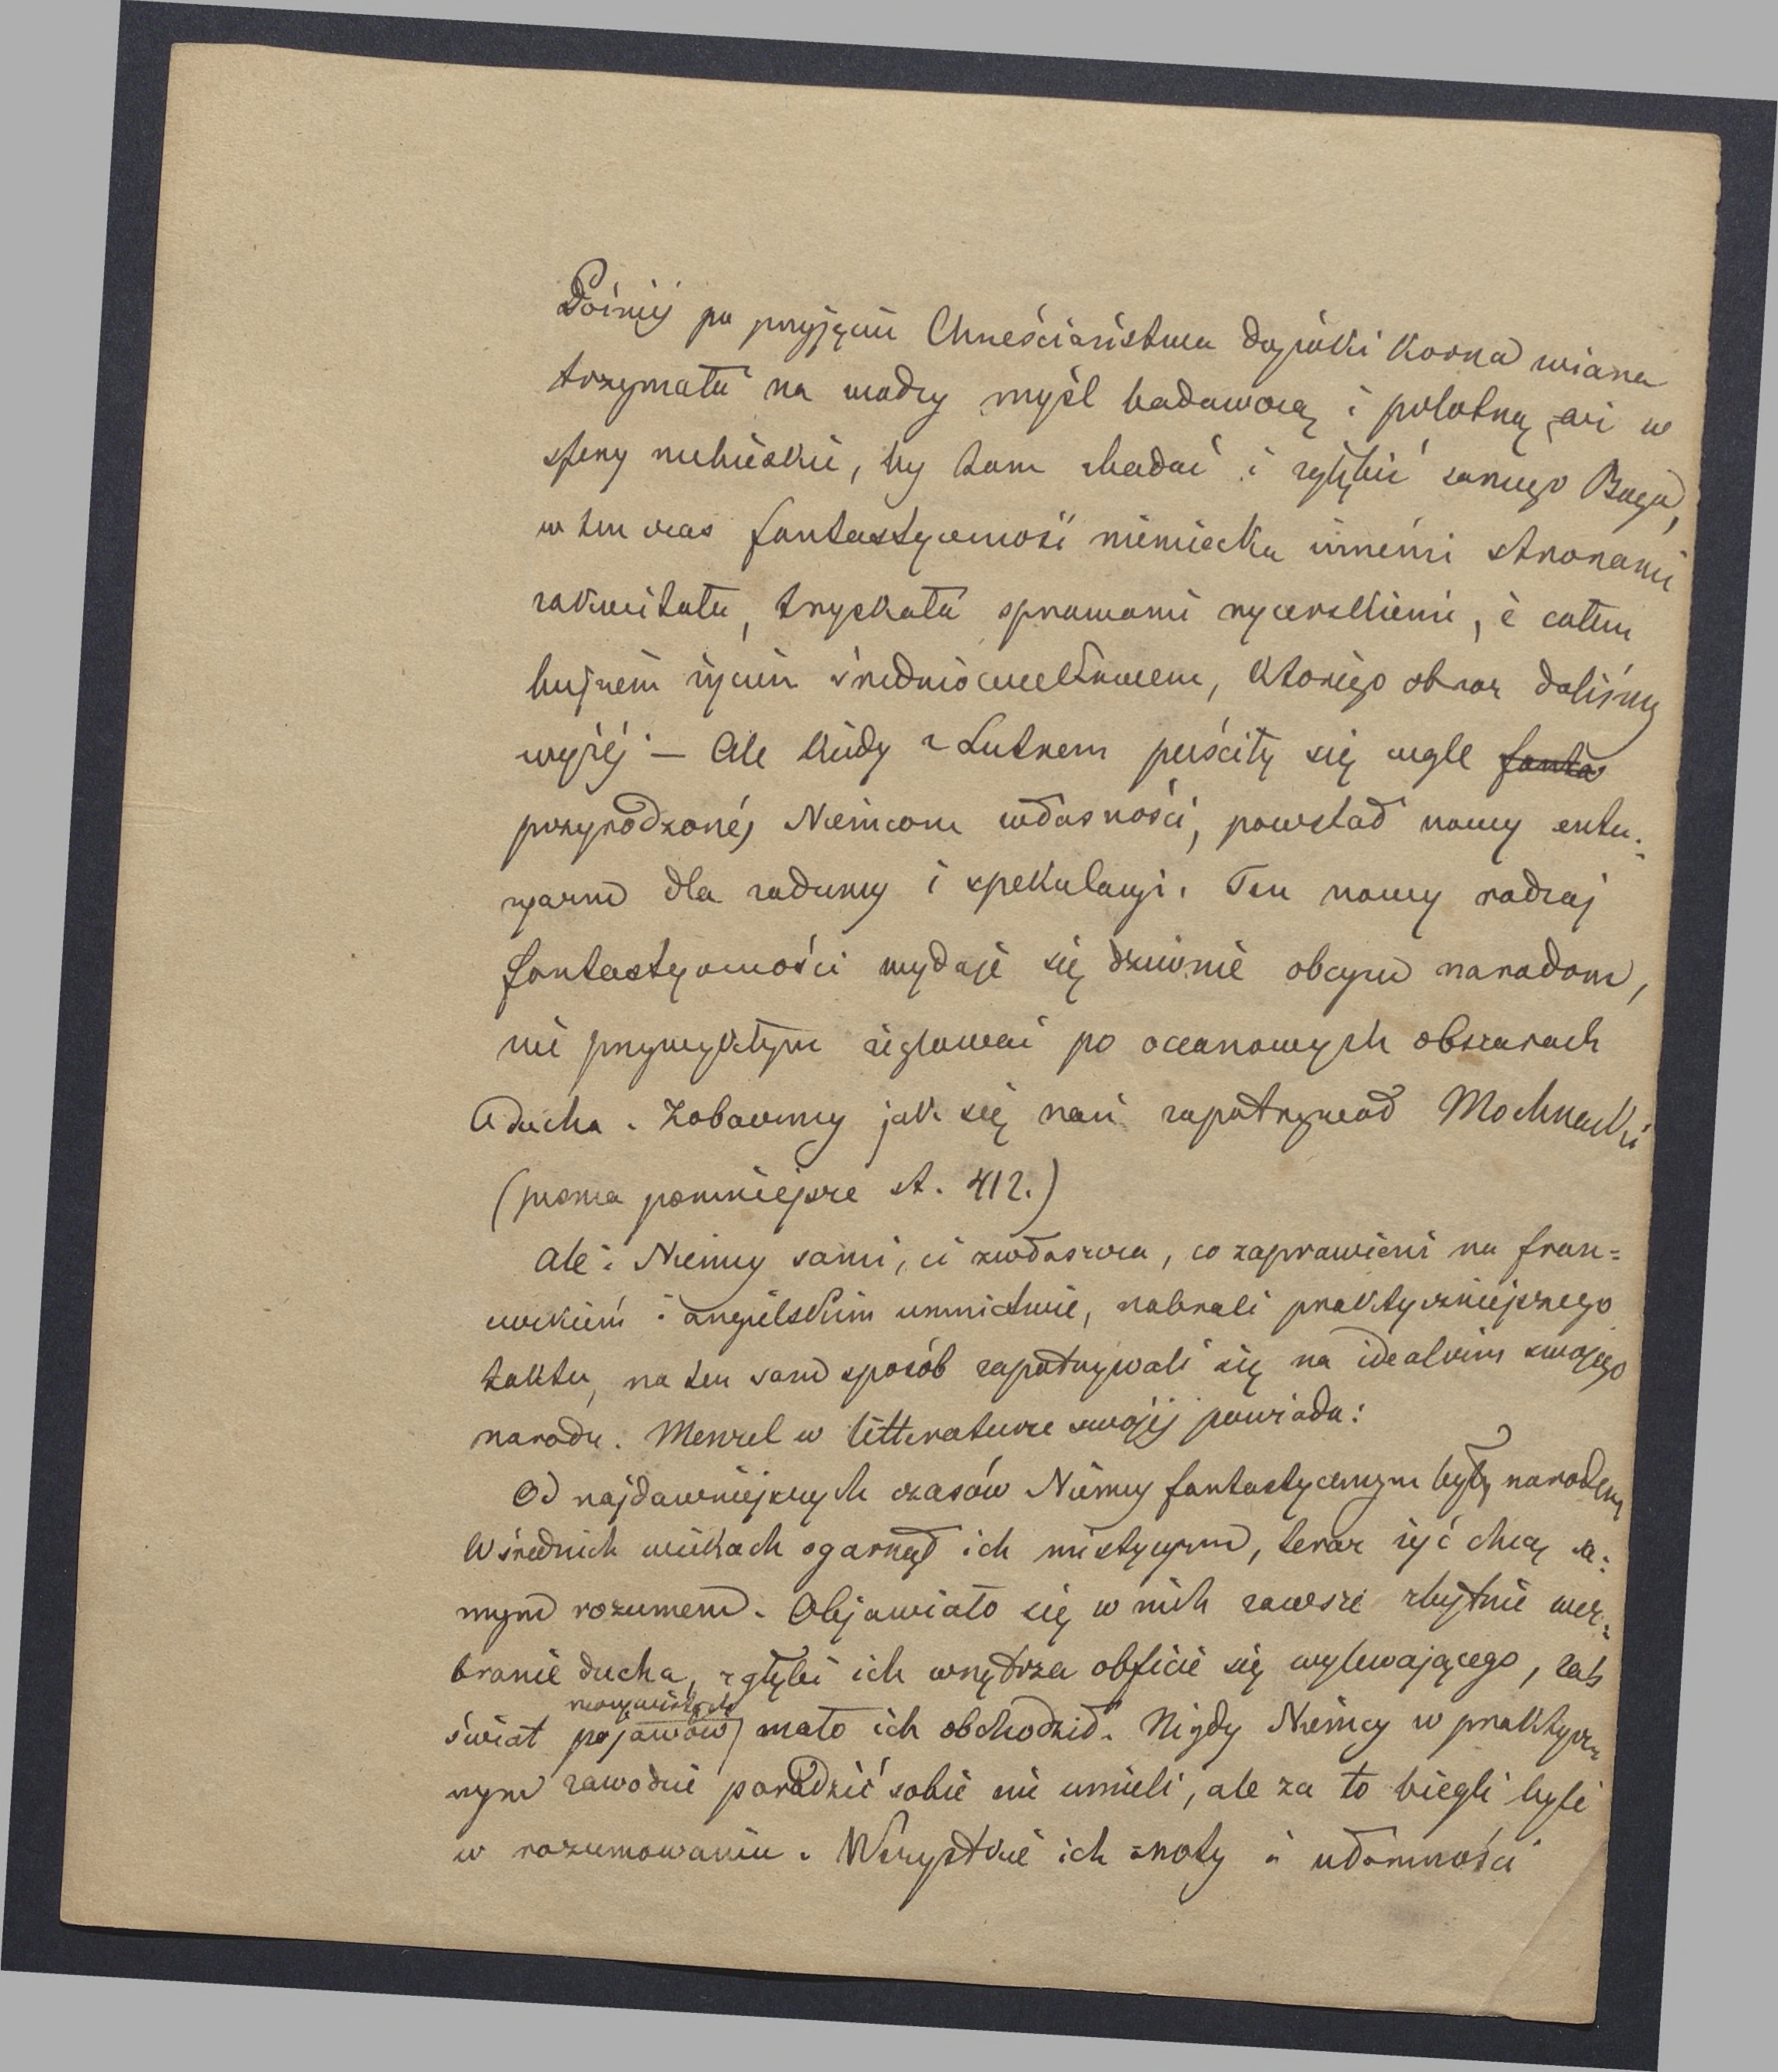 Później po przyjęciu Chrześciaństwa dopóki korna wiara
trzymała na wodzy myśl badawczą i polotną, aż w
sfery niebieskie, by tam zbadać i zgłębić samego Boga,
w ten czas fantastyczność niemiecka innémi stronami
zakwitała, tryskała sprawami rycerskiemi, i całem
bujnem życiem średniowiekowem, którego obraz daliśmy
wyżéj — Ale kiedy z Lutrem puściły się cugle fanta
przyrodzonéj Niemcom własności, powstał nowy entu-
zyazm dla zadumy i spekulacyi. Ten nowy rodzaj
fantastyczności wydaje się dziwnie obcym narodom,
nie przywykłym żeglować po oceanowych obszarach
ducha. Zobaczmy jak się nań zapatrywał Mochnacki
(pisma pomniejsze st. 412.)
Ale i Niemcy sami, ci zwłaszcza, co zaprawieni na fran=
cuzkiem i angielskim umnictwie, nabrali praktyczniejszego
taktu, na ten sam sposób zapatrywali się na idealizm swojego
narodu. Menzel w litteraturze swojéj powiada:
Od najdawniejszych czasów Niemcy fantastycznym były narodem
W średnich wiekach ogarnął ich mistycyzm, teraz żyć chcą sa=
mym rozumem. Objawiało się w nich zawsze zbytnie wez=
branie ducha, z głębi ich wnętrza obficie się wylewającego, zaś
rzeczywistych
świat pojawów mało ich obchodził. Nigdy Niemcy w praktycz=
nym zawodzie poradzić sobie nie umieli, ale za to biegli byli
w rozumowaniu. Wszystkie ich cnoty i ułomności